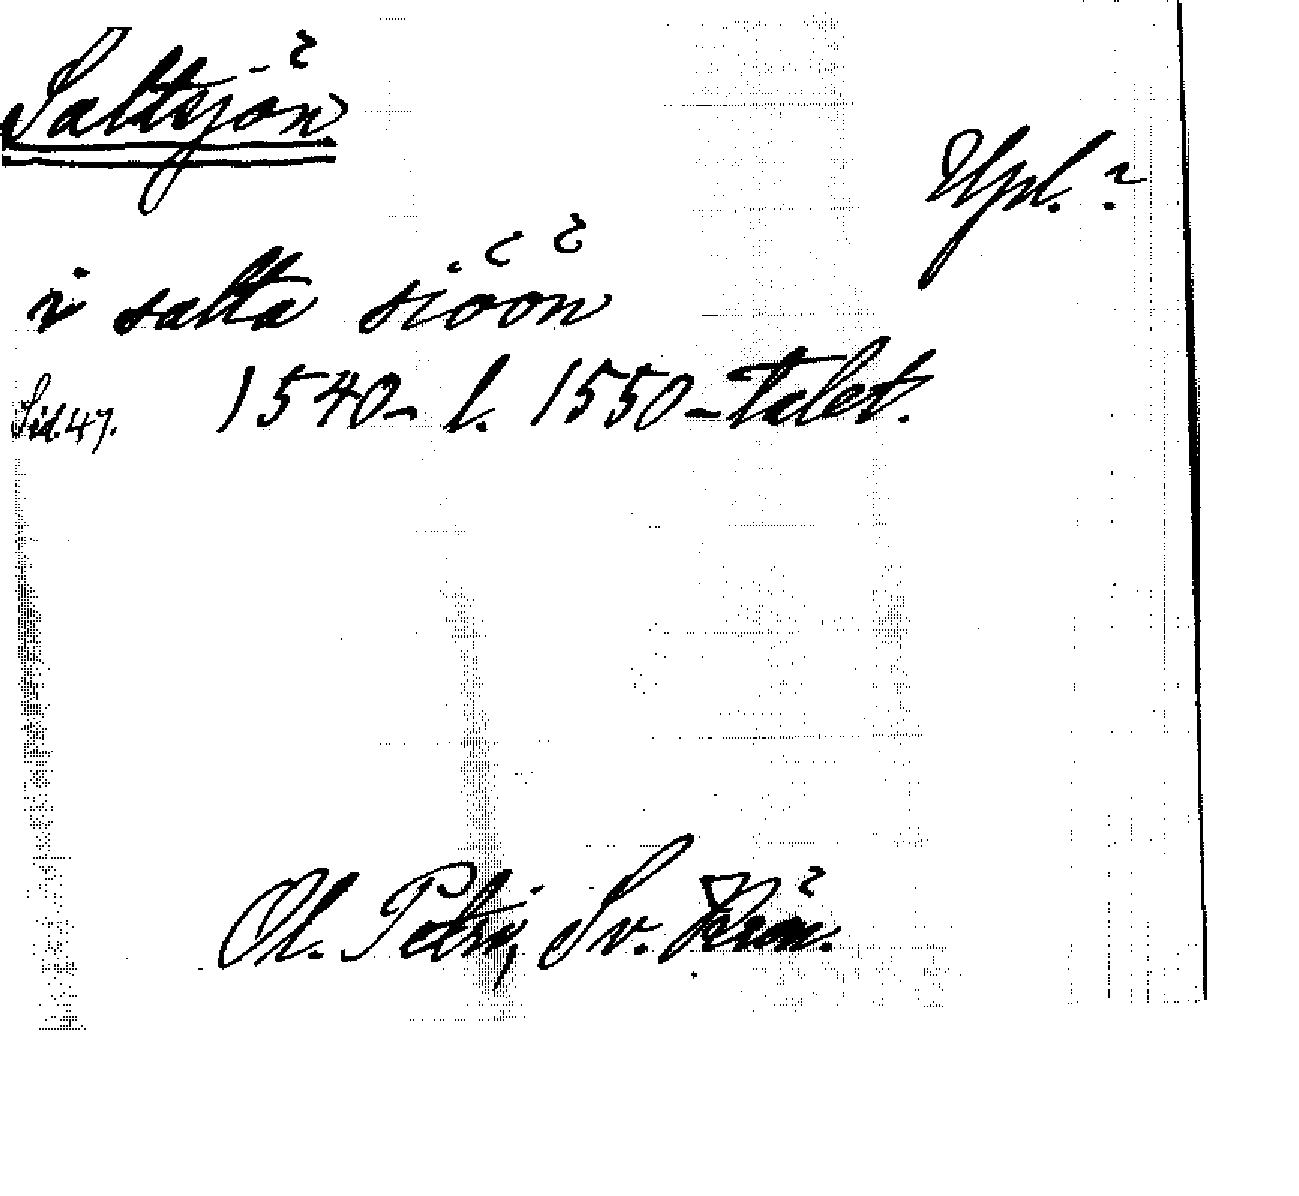 Saltsjön
Upl.?
i salta siöön
Sid. 47. 1540- l. 1550-talet.
Ol. Petri, Sv. Krön.